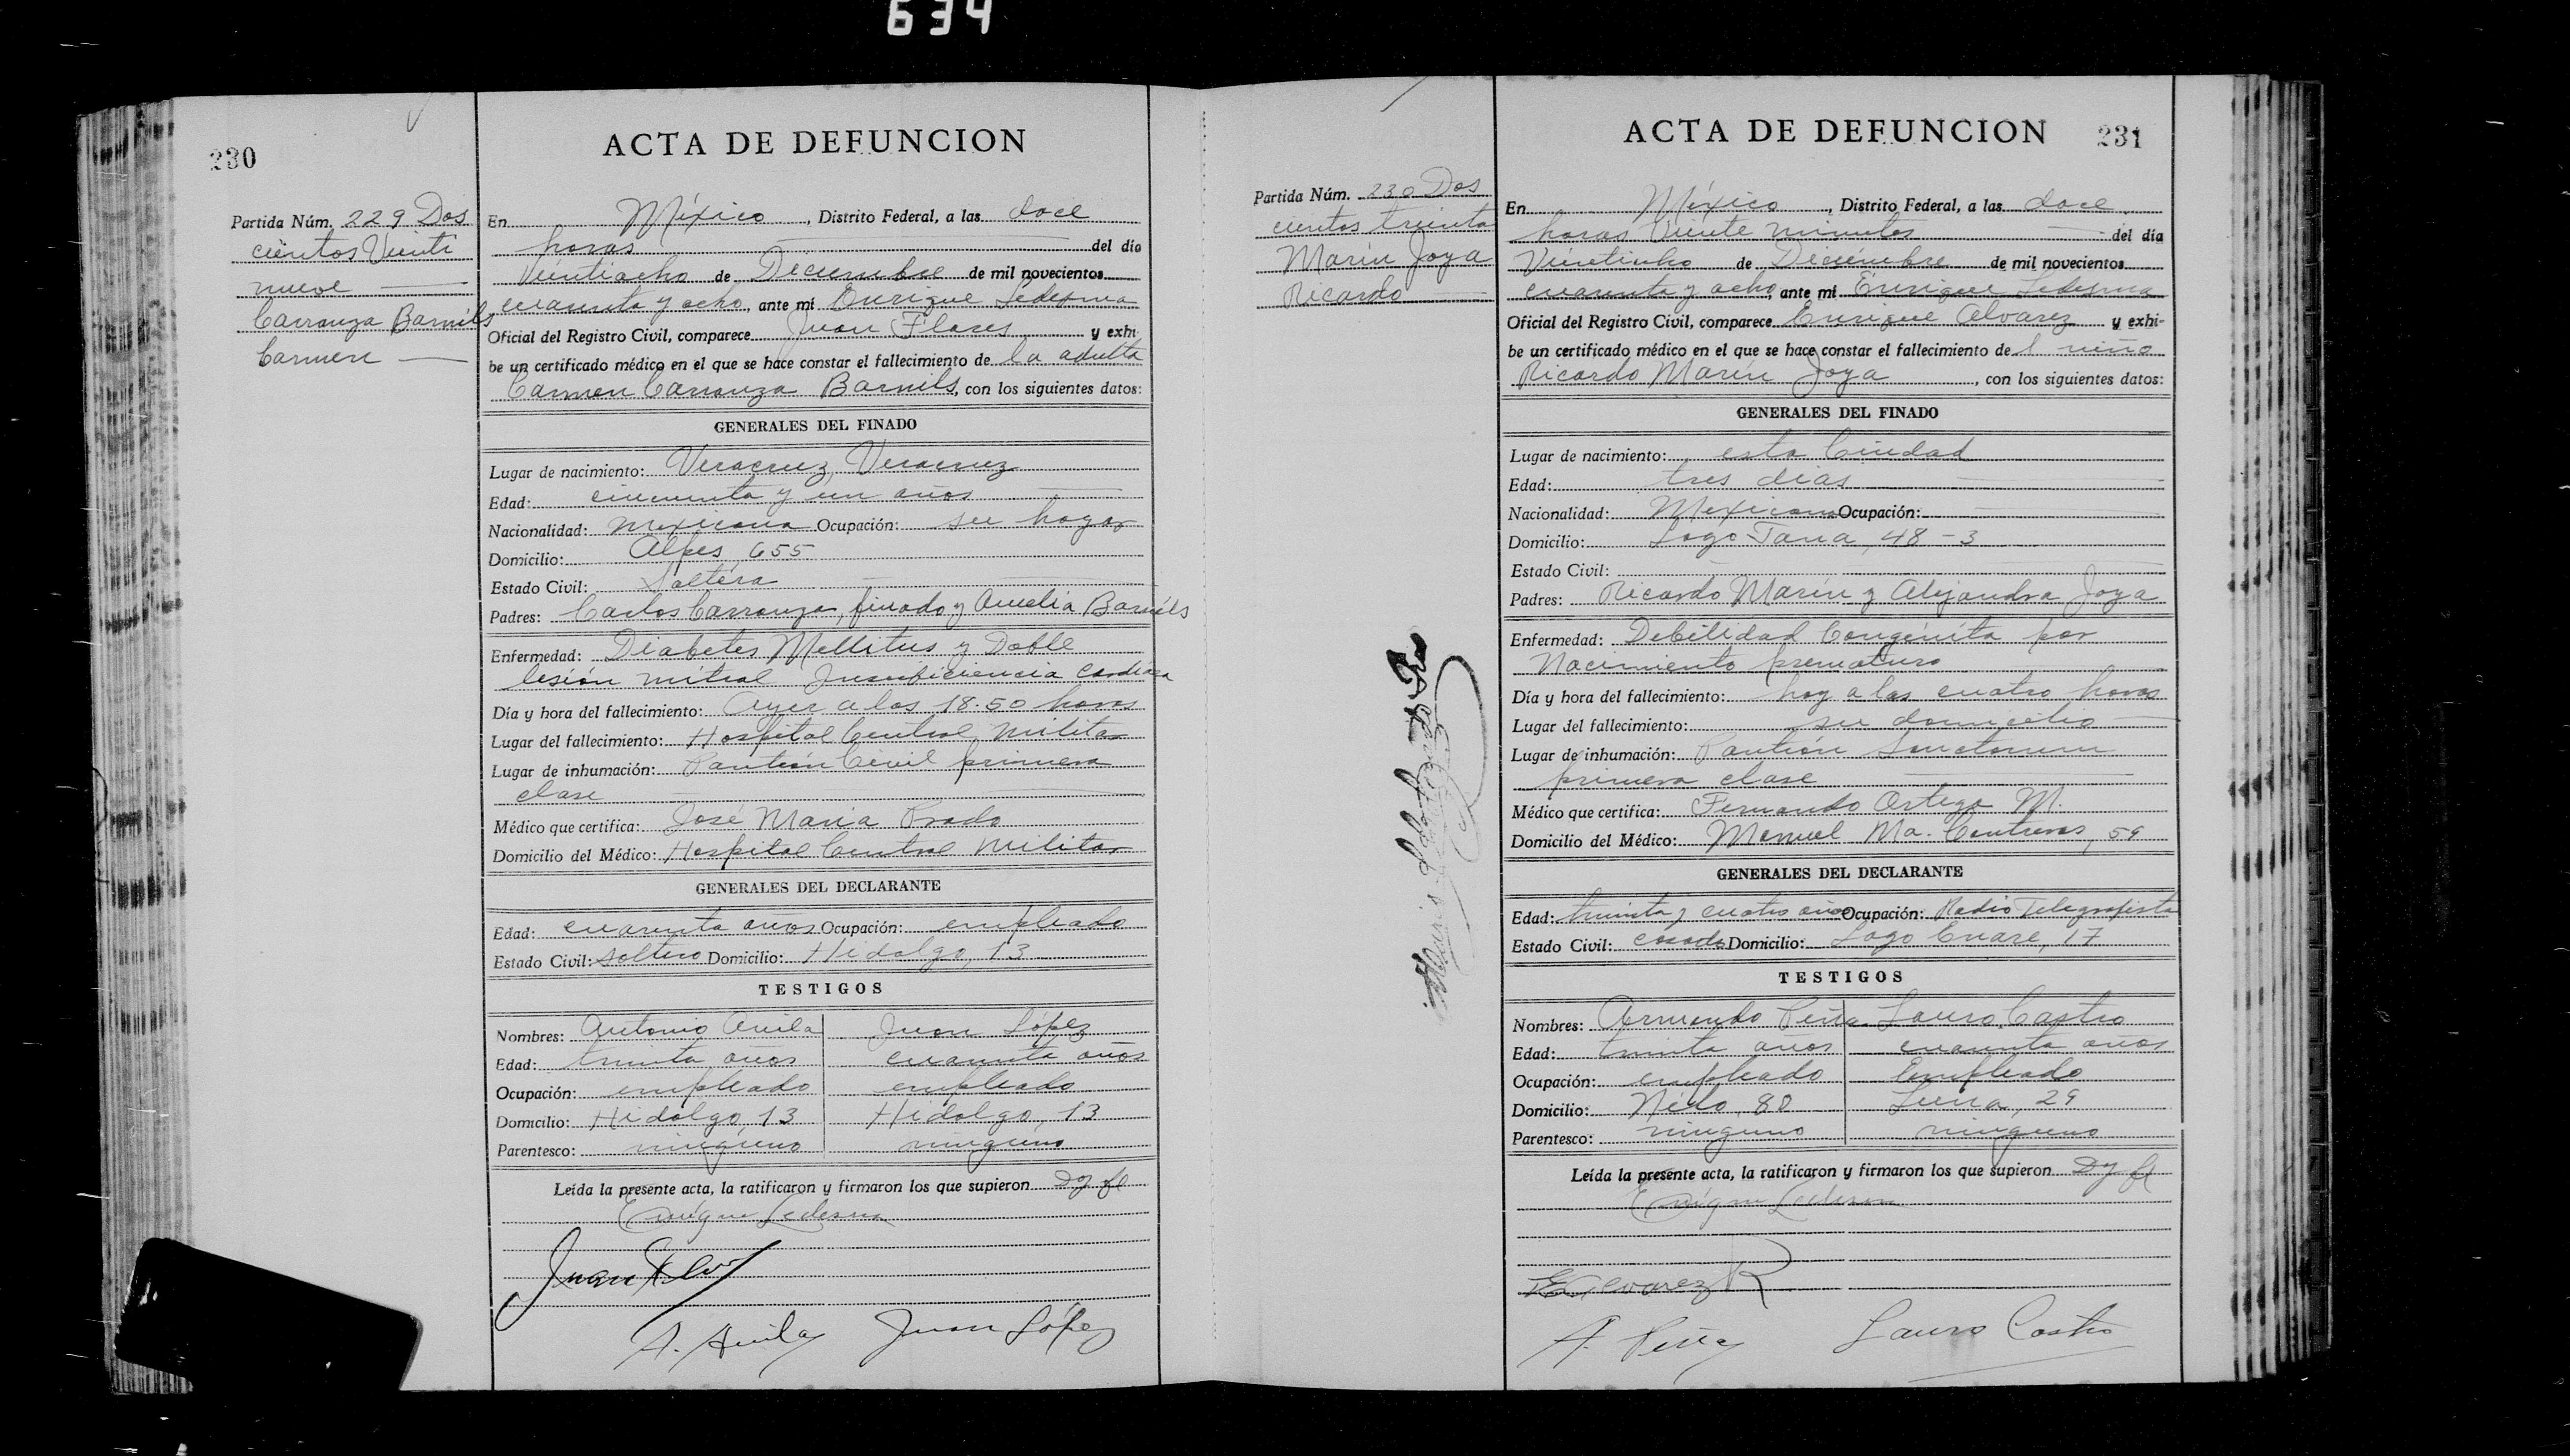 634
230
ACTA DE DEFUNCION
Partida Núm. 229 Dos
cientos Veinti
nueve
Carranza Barnils
Carmen
En México, Distrito Federal, a las doce
horas del día
Veintiocho de Diciembre de mil novecientos
cuarenta y ocho, ante mí Enrique Ledesma
Oficial del Registro Civil, comparece Juan Flores y exhi-
be un certificado médico en el que se hace constar el fallecimiento de la adulta
Carmen Carranza Barnils, con los siguientes datos:
GENERALES DEL FINADO
Lugar de nacimiento: Veracruz, Veracruz
Edad: cincuenta y un años
Nacionalidad: mexicana Ocupación: su hogar
Domicilio: Alpes 655
Estado Civil: Soltera
Padres: Carlos Carranza, finado y Amelia Barnils
Enfermedad: Diabetes Mellitus y Doble
lesión mitral Insuficiencia cardiaca
Día y hora del fallecimiento: Ayer a las 18.50 horas
Lugar del fallecimiento: Hospital Central Militar
Lugar de inhumación: Panteón Civil primera
clase
Médico que certifica: José María Prado
Domicilio del Médico: Hospital Central Militar
GENERALES DEL DECLARANTE
Edad: cuarenta años Ocupación: empleado
Estado Civil: soltero Domicilio: Hidalgo, 13
TESTIGOS
Nombres: Antonio Avila Juan López
Edad: treinta años cuarenta años
Ocupación: empleado empleado
Domicilio: Hidalgo, 13 Hidalgo, 13
Parentesco: ninguno ninguno
Leída la presente acta, la ratificaron y firmaron los que supieron Doy fe
Enrique Ledesma
Juan Flores
A. Avila Juan López
ACTA DE DEFUNCION 231
Partida Núm. 230 Dos
cientos treinta
Marín Joya
Ricardo
En México, Distrito Federal, a las doce
horas veinte minutos del día
Veintiocho de Diciembre de mil novecientos
cuarenta y ocho, ante mí Enrique Ledesma
Oficial del Registro Civil, comparece Enrique Alvarez y exhi-
be un certificado médico en el que se hace constar el fallecimiento del niño
Ricardo Marín Joya, con los siguientes datos:
GENERALES DEL FINADO
Lugar de nacimiento: esta Ciudad
Edad: tres días
Nacionalidad: Mexicana Ocupación:
Domicilio: Lago Tana, 48-3
Estado Civil:
Padres: Ricardo Marín y Alejandra Joya
Enfermedad: Debilidad Congénita por
Nacimiento prematuro
Día y hora del fallecimiento: hoy a las cuatro horas
Lugar del fallecimiento: su domicilio
Lugar de inhumación: Panteón Sanctorum
primera clase
Médico que certifica: Fernando Ortega M.
Domicilio del Médico: Manuel Ma. Contreras, 59
GENERALES DEL DECLARANTE
Edad: treinta y cuatro años Ocupación: Radio Telegrafista
Estado Civil: casado Domicilio: Lago Cuare, 17
TESTIGOS
Nombres: Armando Peña Lauro Castro
Edad: treinta años cuarenta años
Ocupación: empleado Empleado
Domicilio: Nilo, 80 Luna, 29
Parentesco: ninguno ninguno
Leída la presente acta, la ratificaron y firmaron los que supieron Doy fe
Enrique Ledesma
E Alvarez R
A. Peña Lauro Castro